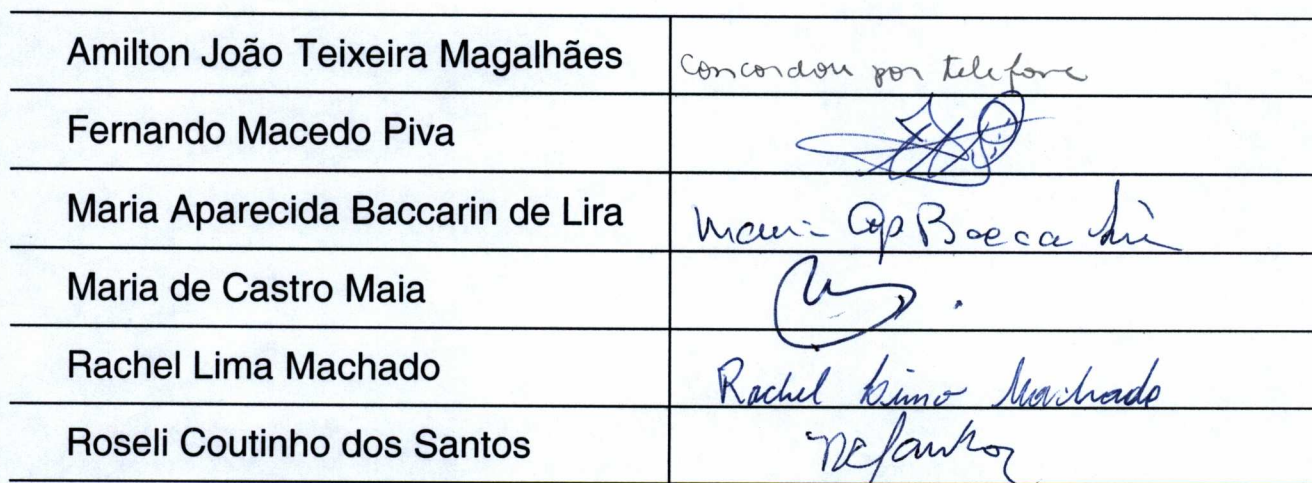 Amilton João Teixeira Magalhães concordou por telefone
Fernando Macedo Piva
Maria Aparecida Baccarin de Lira Maria Ap Bacca
Maria de Castro Maia
Rachel Lima Machado Rachel Lima Machado
Roseli Coutinho dos Santos